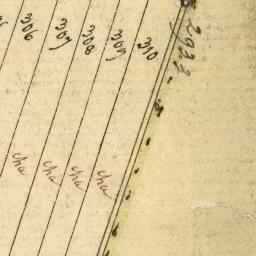 306
307
308
309
310
2922.
cha
cha
cha
cha